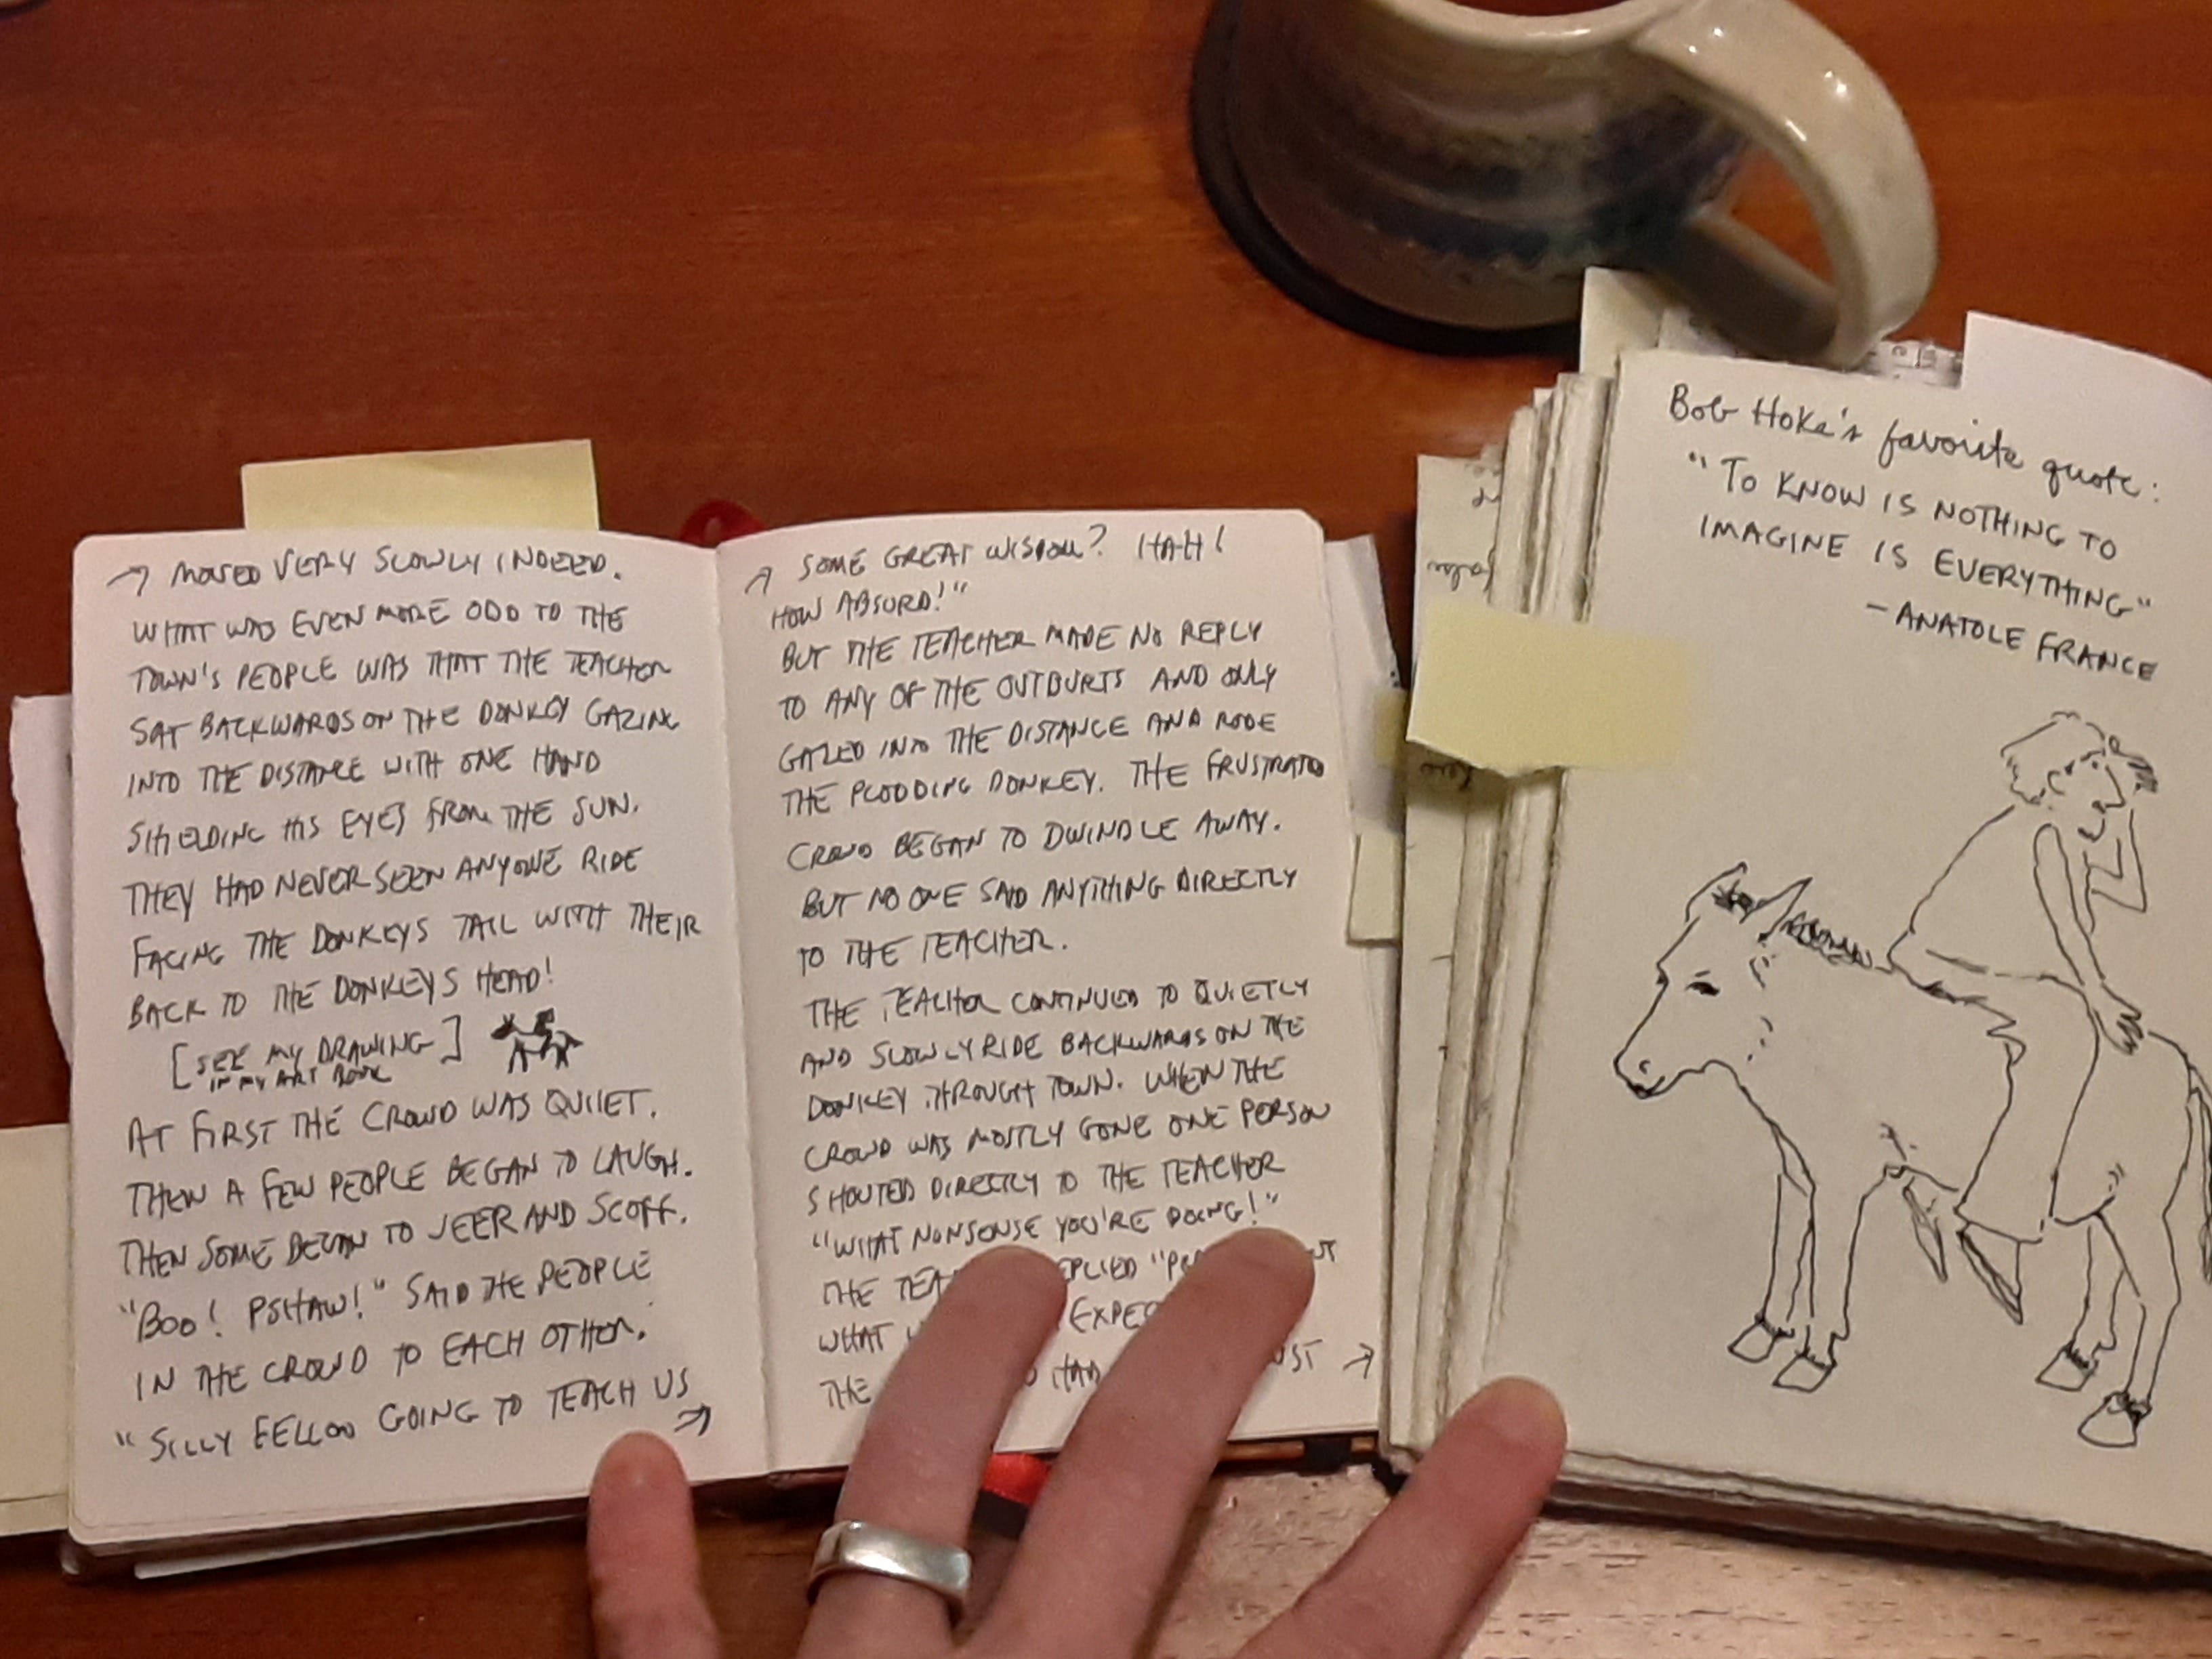 MOVED VERY SLOWLY INDEED.
WHAT WAS EVEN MORE ODD TO THE
TOWN'S PEOPLE WAS THAT THE TEACHER
SAT BACKWARDS ON THE DONKEY GAZING
INTO THE DISTANCE WITH ONE HAND
SHIELDING HIS EYES FROM THE SUN.
THEY HAD NEVER SEEN ANYONE RIDE
FACING THE DONKEYS TAIL WITH THEIR
BACK TO THE DONKEYS HEAD!
[SEE MY DRAWING]
IN MY ART BOOK
AT FIRST THE CROWD WAS QUIET.
THEN A FEW PEOPLE BEGAN TO LAUGH.
THEN SOME BEGAN TO JEER AND SCOFF.
"BOO! PSHAW!" SAID THE PEOPLE
IN THE CROWD TO EACH OTHER.
"SILLY FELLOW GOING TO TEACH US
SOME GREAT WISDOM? HAH!
HOW ABSURD!"
BUT THE TEACHER MADE NO REPLY
TO ANY OF THE OUTBURTS AND ONLY
GAZED INTO THE DISTANCE AND RODE
THE PLODDING DONKEY. THE FRUSTRATED
CROWD BEGAN TO DWINDLE AWAY.
BUT NO ONE SAID ANYTHING DIRECTLY
TO THE TEACHER.
THE TEACHER CONTINUED TO QUIETLY
AND SLOWLY RIDE BACKWARDS ON THE
DONKEY THROUGH TOWN. WHEN THE
CROWD WAS MOSTLY GONE ONE PERSON
SHOUTED DIRECTLY TO THE TEACHER
"WHAT NONSENSE YOU'RE DOING!"
THE
WHAT
THE
Bob Hoke's favorite quote:
"TO KNOW IS NOTHING TO
IMAGINE IS EVERYTHING"
- ANATOLE FRANCE